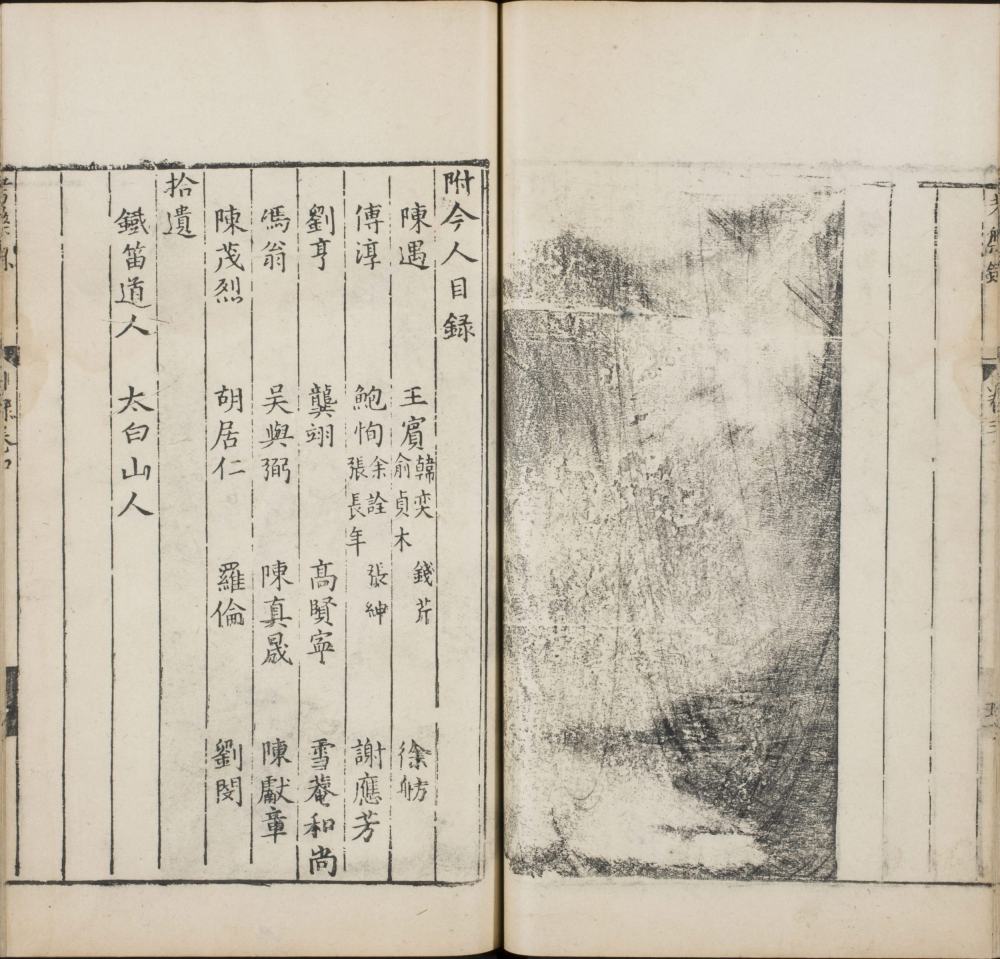 附今人目録
陳遇 王賔 韓奕 俞貞木 錢芹 徐舫
傅淳 鮑恂 余詮 張長年 張紳 謝應芳
劉亨 龔翊 髙賢寜 雪菴和尚
馮翁 吳與弼 陳真晟 陳獻章
陳茂烈 胡居仁 羅倫 劉閔
拾遺
鐵笛道人 太白山人